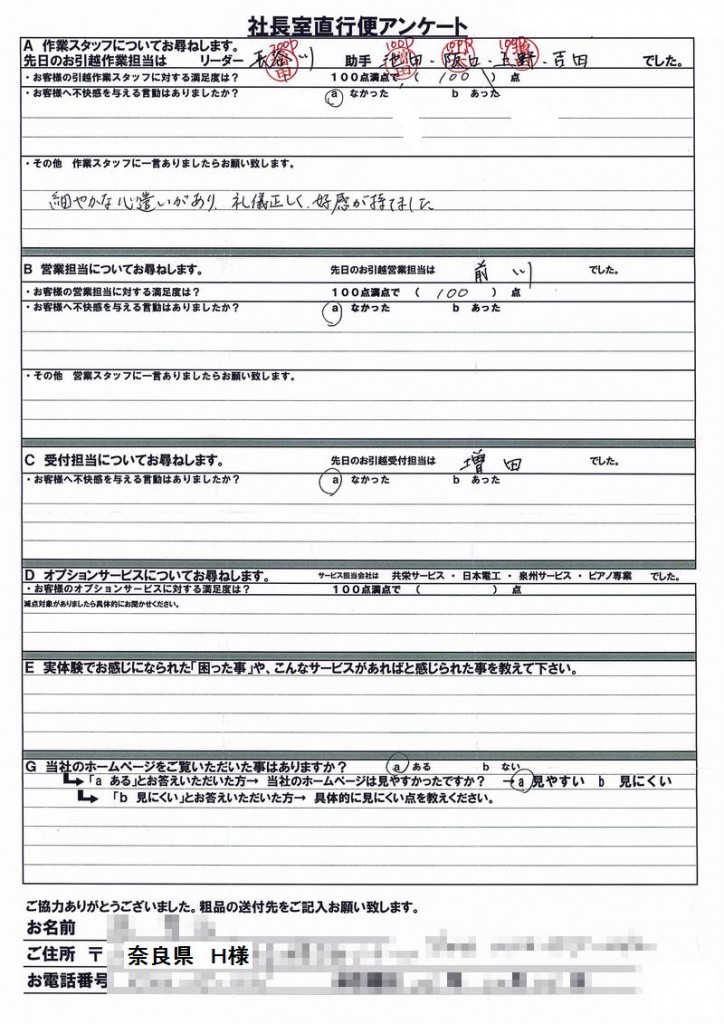 社長室直行便アンケート
A 作業スタッフについてお尋ねします。
先日のお引越作業担当は リーダー 長谷川 助手 池田・阪口・上野・吉田 でした。
・お客様の引越作業スタッフに対する満足度は? 100点満点で ( 100 ) 点
・お客様へ不快感を与える言動はありましたか? a なかった b あった
・その他 作業スタッフに一言ありましたらお願い致します。
細やかな心遣いがあり、礼儀正しく、好感が持てました
B 営業担当についてお尋ねします。 先日のお引越営業担当は 前川 でした。
・お客様の営業担当に対する満足度は? 100点満点で ( 100 ) 点
・お客様へ不快感を与える言動はありましたか? a なかった b あった
・その他 営業スタッフに一言ありましたらお願い致します。
C 受付担当についてお尋ねします。 先日のお引越受付担当は 増田 でした。
・お客様へ不快感を与える言動はありましたか? a なかった b あった
D オプションサービスについてお尋ねします。 サービス担当会社は 共栄サービス ・ 日本電工 ・ 泉州サービス ・ ピアノ専業 でした。
・お客様のオプションサービスに対する満足度は? 100点満点で ( ) 点
減点対象がありましたら具体的にお聞かせください。
E 実体験でお感じになられた「困った事」や、こんなサービスがあればと感じられた事を教えて下さい。
G 当社のホームページをご覧いただいた事はありますか? a ある b ない
「a ある」とお答えいただいた方→ 当社のホームページは見やすかったですか? →a 見やすい b 見にくい
「b 見にくい」とお答えいただいた方→ 具体的に見にくい点を教えください。
ご協力ありがとうございました。粗品の送付先をご記入お願い致します。
お名前
ご住所 〒 奈良県 H様
お電話番号